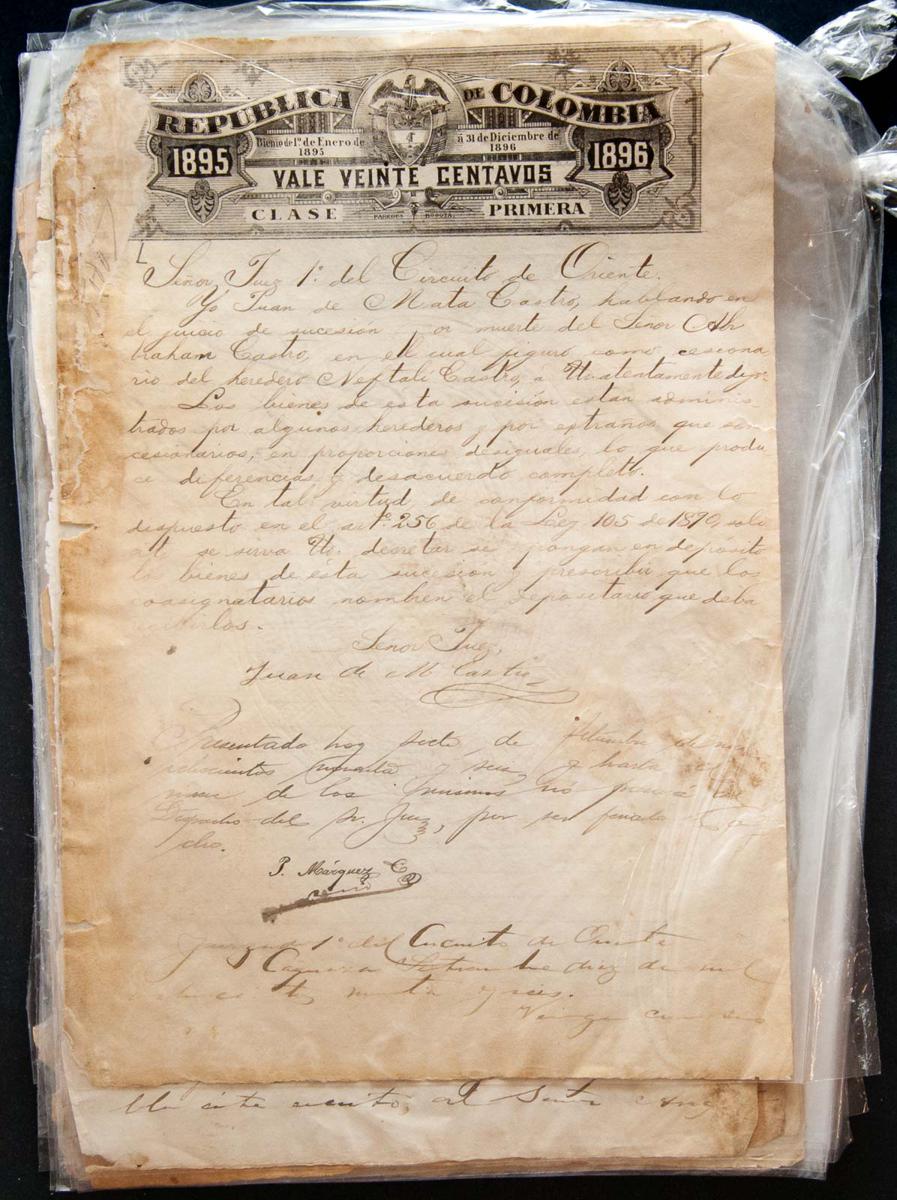 REPUBLICA DE COLOMBIA
1895
Bienio del 1º de Enero de 1895
á 31 de Diciembre de 1896
1896
VALE VEINTE CENTAVOS
CLASE
PRIMERA
Señor Juez 1º del Circuito de Oriente.
Yo Juan de Mata Castro, hablando en
el juicio de sucesión por muerte del Señor Ab
raham Castro, en el cual figuro como cesiona
rio del heredero Neftalí Castro, a Ud. atentamente digo:
Los bienes de esta sucesión están adminis
trados por algunos herederos y por extraños que son
cesionarios, en proporciones desiguales, lo que produ
ce diferencias y desacuerdo completo.
En tal virtud, de conformidad con lo
dispuesto en el artº 256 de la Ley 105 de 1890, soli
se sirva Ud. decretar se pongan en depósito
los bienes de ésta sucesión y prescribir que los
coasignatarios nombren el depositario que deba
recibirlos.
Señor Juez,
Juan de M Castro
Presentado hoy siete de Setiembre de mil
ochocientos noventa y seis y hasta
de los mismos no pasa al
Despacho del Sr. Juez, por ser feriado
dho.
P. Márquez C
Juzgado 1º del Circuito de Oriente
Cáqueza Setiembre diez de mil
ochocientos noventa y seis.
este escrito, el